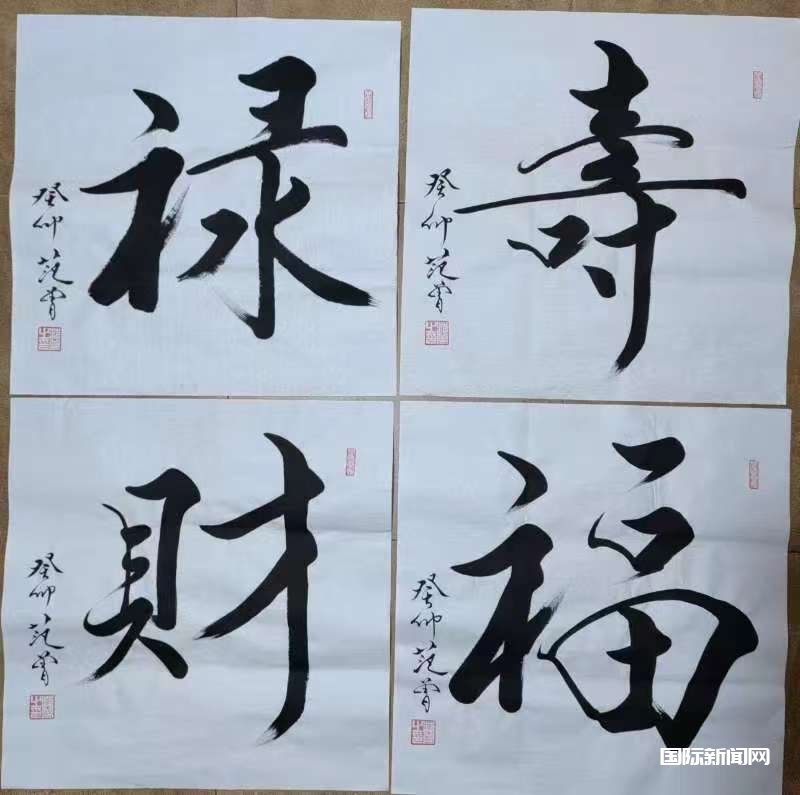 禄
癸卯 范曾
壽
癸卯 范曾
財
癸卯 范曾
福
癸卯 范曾
国际新闻网